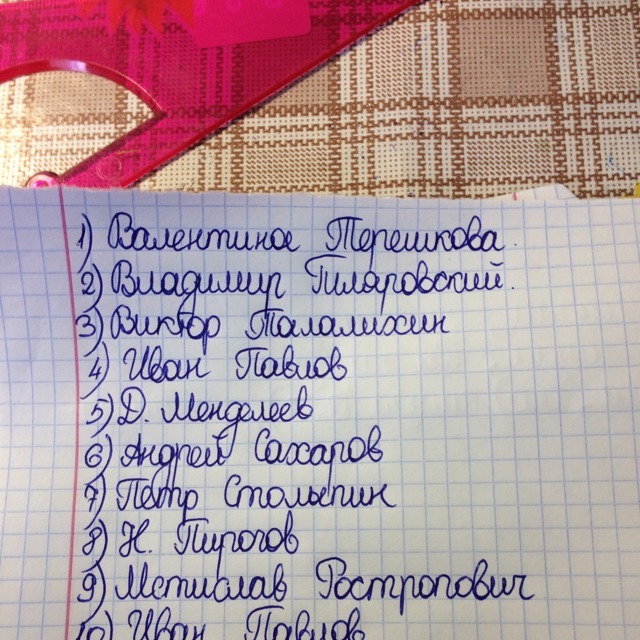 1) Валентина Терешкова.
2) Владимир Гиляровский.
3) Виктор Талалихин
4) Иван Павлов
5) Д. Менделеев
6) Андрей Сахаров
7) Пётр Столыпин
8) Н. Пирогов
9) Мстислав Ростропович
10) Иван Павлов